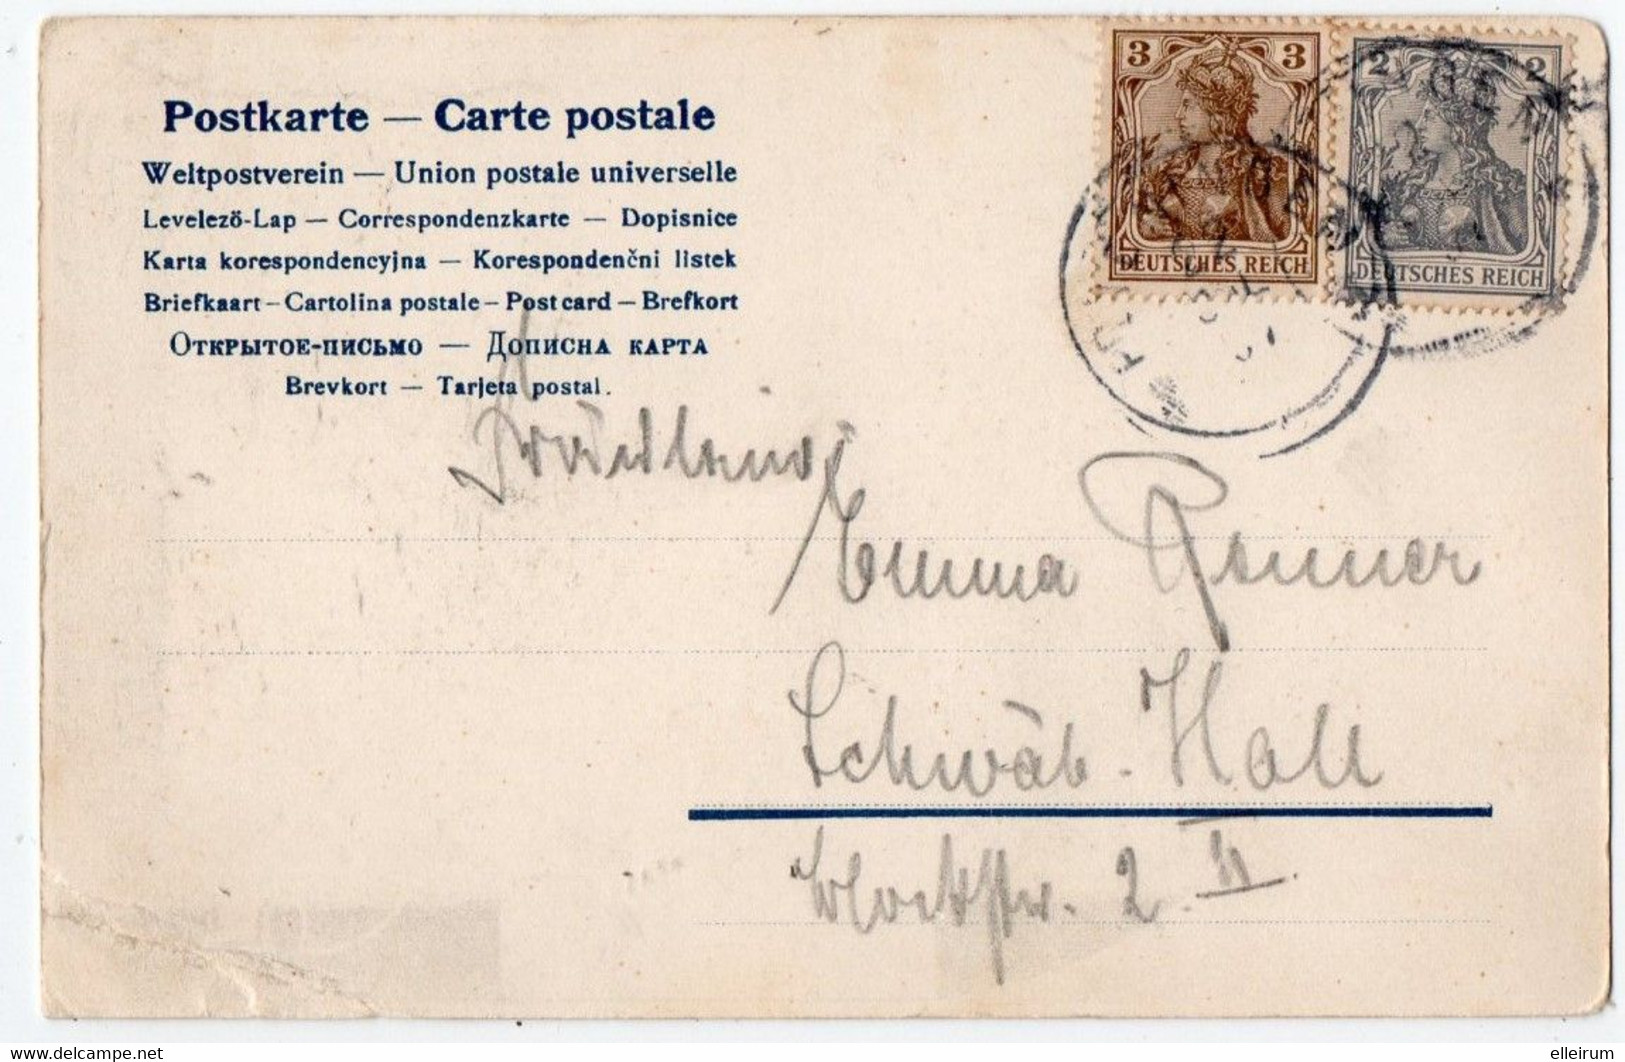 Postkarte — Carte postale
Weltpostverein — Union postale universelle
Levelező-Lap — Correspondenzkarte — Dopisnice
Karta korespondencyjna — Korespondenčni listek
Briefkaart — Cartolina postale — Post card — Brefkort
Открытое-письмо — Дописна карта
Brevkort — Tarjeta postal.
3 3
DEUTSCHES REICH
2 2
DEUTSCHES REICH
Fräulein
Emma Renner
Schwäb. Hall
2. II
elleirum